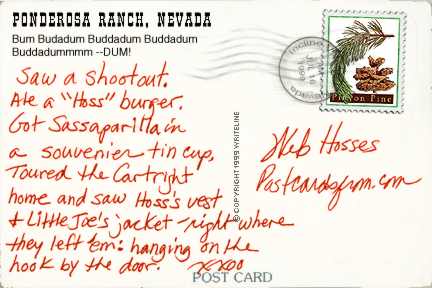 PONDEROSA RANCH, NEVADA
Bum Budadum Buddadum Buddadum
Buddadummmm --DUM!
Saw a shootout.
Ate a "Hoss" burger.
Got Sassaparilla in
a souvenier tin cup.
Toured the Cartright
home and saw Hoss's vest
& Little Joe's jacket - right where
they left 'em: hanging on the
hook by the door. xxoo
© COPYRIGHT 1999 WRITELINE
Pinyon Pine
Web Hosses
Postcardsfrom.com
POST CARD